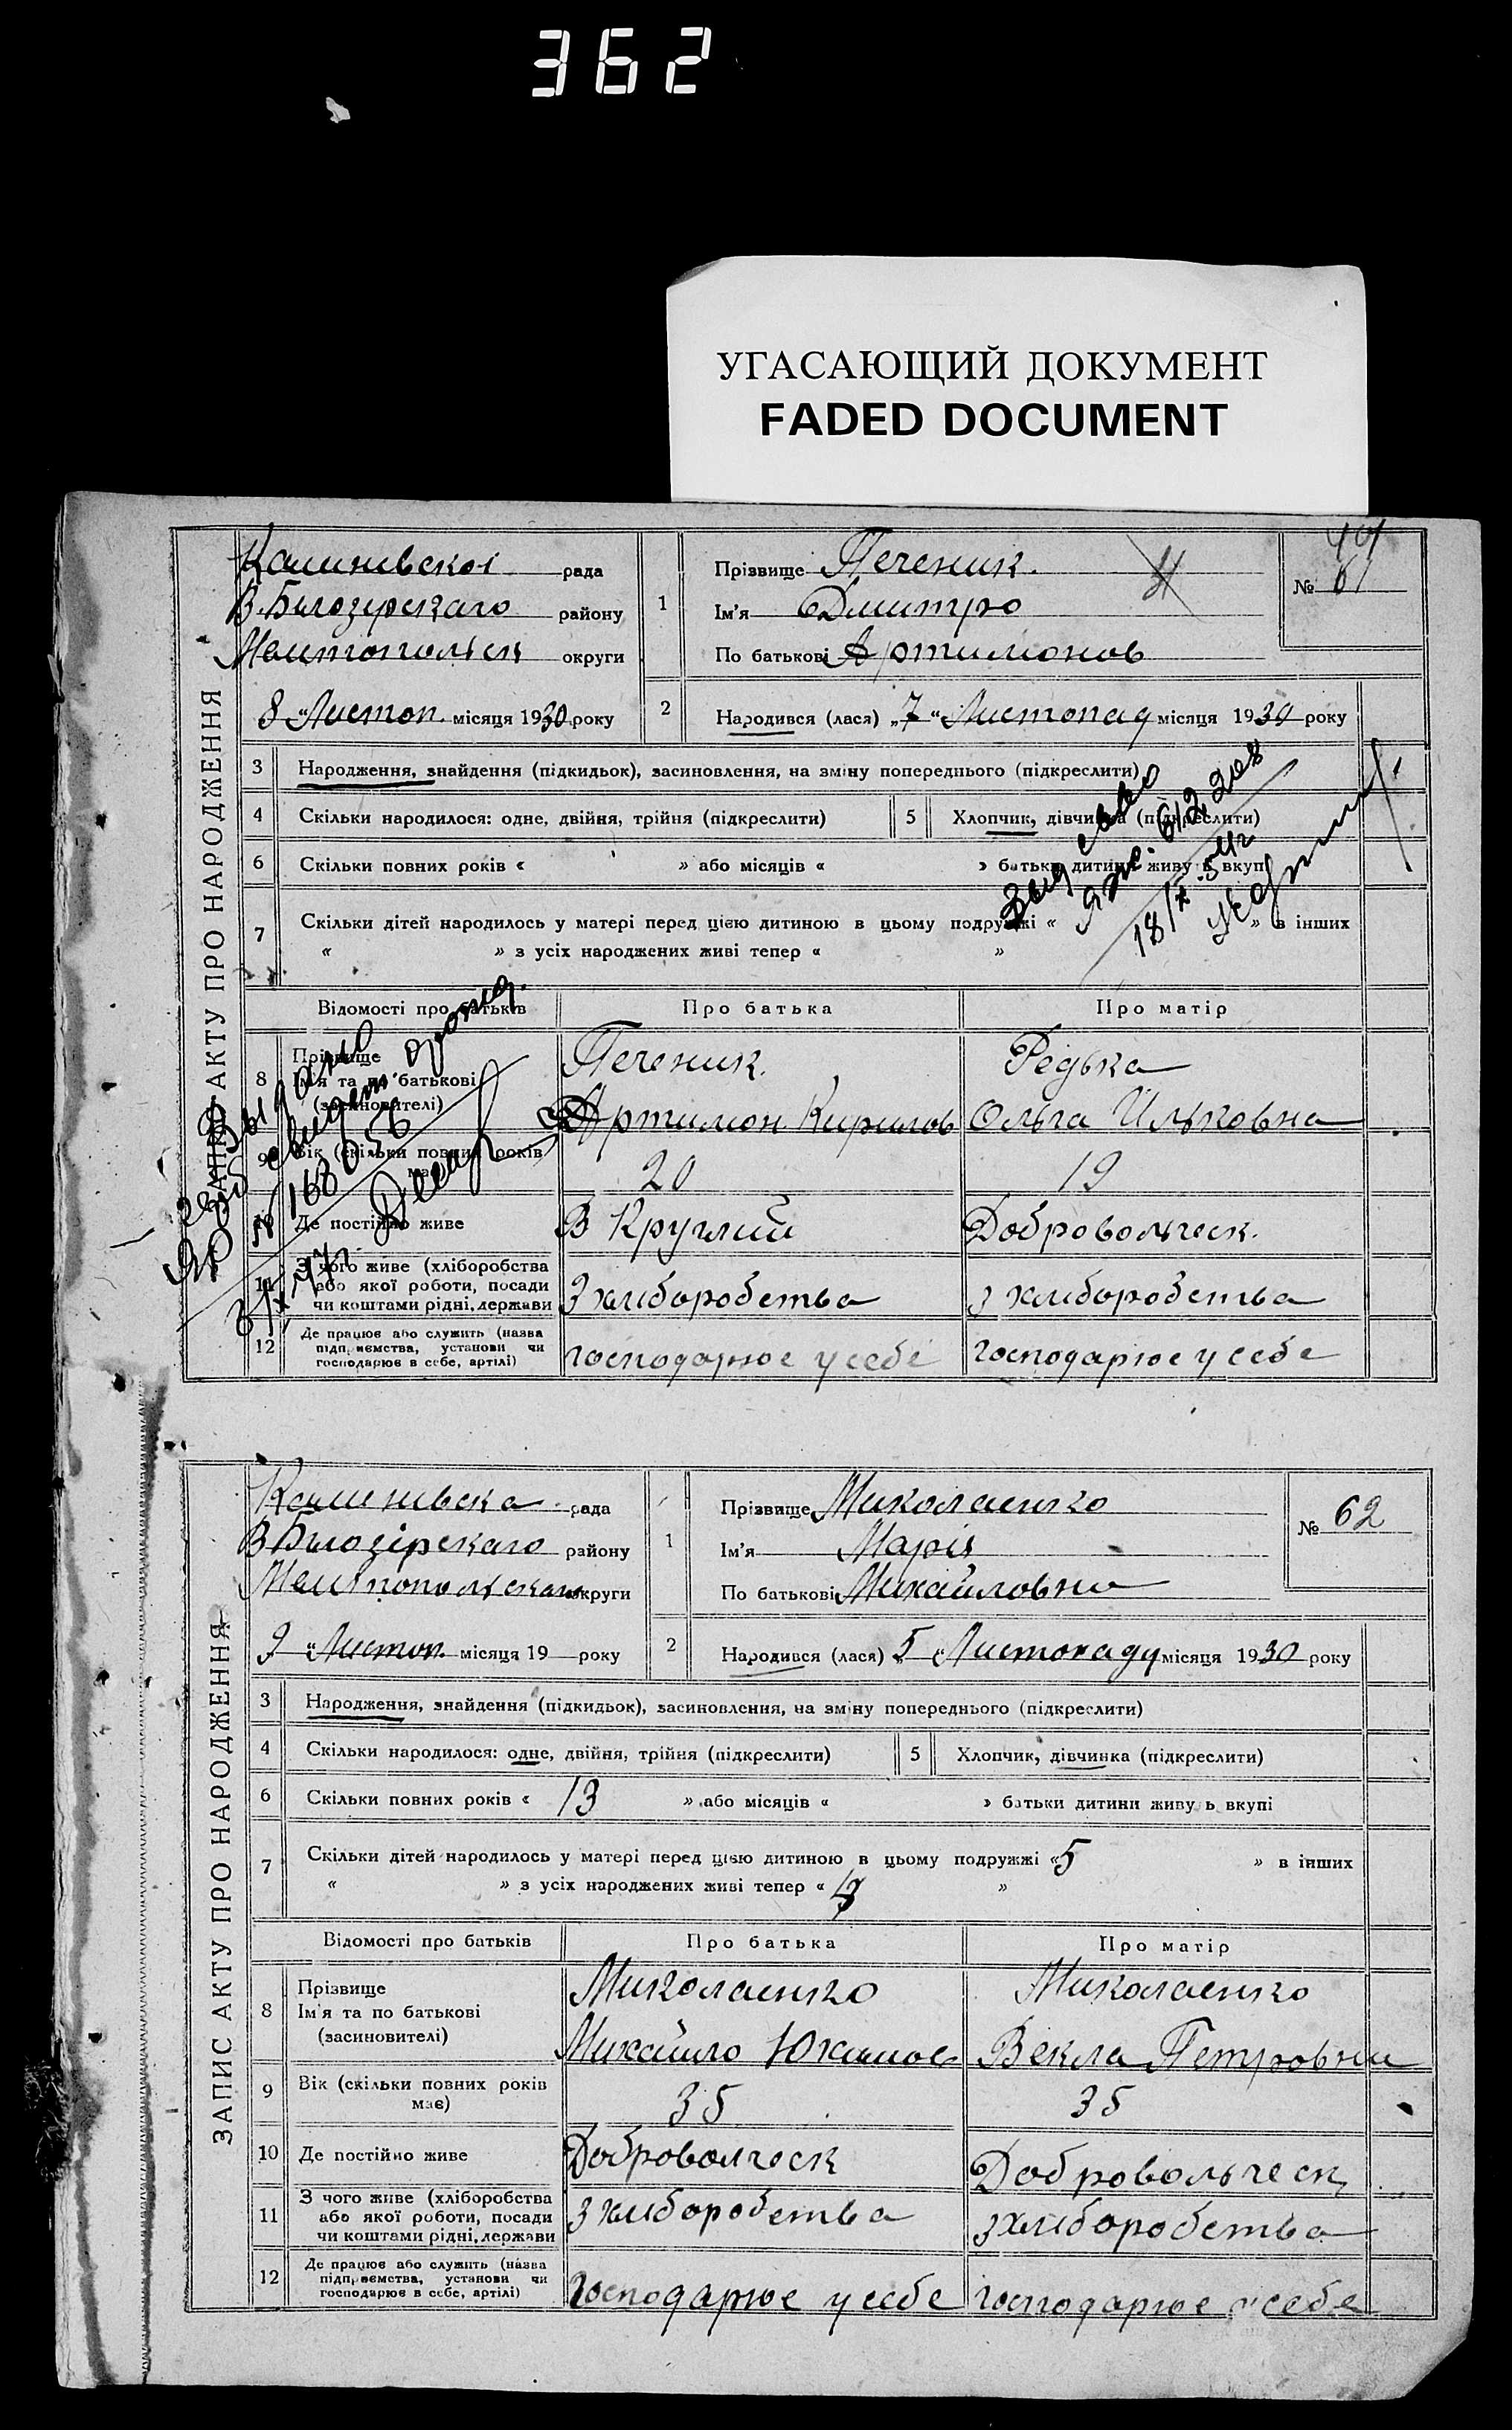 362
УГАСАЮЩИЙ ДОКУМЕНТ
FADED DOCUMENT
ЗАПИС АКТУ ПРО НАРОДЖЕННЯ
Калинивскоі рада
В.Билозерскаго району
округи
8 "Листоп. місяця 1930 року
1
Прізвище Печеник.
Ім'я Дмитро
По батькові Артимонов
№ 61
2 Народився (лася) „7“ Листопад місяця 1930 року
3 Народження, знайдення (підкидьок), засиновлення, на зміну попереднього (підкреслити)
4 Скільки народилося: одне, двійня, трійня (підкреслити) 5 Хлопчик, дівчинка (підкреслити)
6 Скільки повних років « » або місяців « » батьки дитини живуть вкупі
7 Скільки дітей народилось у матері перед цією дитиною в цьому подружжі « » в інших
« » з усіх народжених живі тепер « »
612208
18/X
Відомості про батьків Про батька Про матір
8 Прізвище
Ім'я та по батькові
(засиновителі)
Печеник.
Артимон Кирилов
Редька
Ольга Илковна
9 Вік (скільки повних років має) 20 19
10 Де постійно живе В Круглий Добровольческ.
11 З чого живе (хліборобства
або якої роботи, посади
чи коштами рідні, держави
З хлиборобства з хлиборобства
12 Де працює або служить (назва
підприємства, установи чи
господарює в себе, артілі)
господарюе у себе господарюе у себе
Выдано
свидет
№ 168056
ЗАПИС АКТУ ПРО НАРОДЖЕННЯ
Калинивска рада
В Билозірскаго району
округи
9 "Листоп. місяця 19 року
1
Прізвище Миколаенко
Ім'я Марія
По батькові Михайловна
№ 62
2 Народився (лася) „5 “ Листопаду місяця 1930 року
3 Народження, знайдення (підкидьок), засиновлення, на зміну попереднього (підкреслити)
4 Скільки народилося: одне, двійня, трійня (підкреслити) 5 Хлопчик, дівчинка (підкреслити)
6 Скільки повних років « 13 » або місяців « » батьки дитини живу ь вкупі
7 Скільки дітей народилось у матері перед цією дитиною в цьому подружжі «5 » в інших
« » з усіх народжених живі тепер « »
Відомості про батьків Про батька Про матір
8 Прізвище
Ім'я та по батькові
(засиновителі)
Миколаенко
Михайло
Миколаенко
Векла Петровна
9 Вік (скільки повних років
має)
35 35
10 Де постійно живе Доброволческ Добровольческ
11 З чого живе (хліборобства
або якої роботи, посади
чи коштами рідні, держави
з хлиборобства з хлиборобства
12 Де працює або служить (назва
підприємства, установи чи
господарює в себе, артілі)
господарюе у себе господарюе у себе